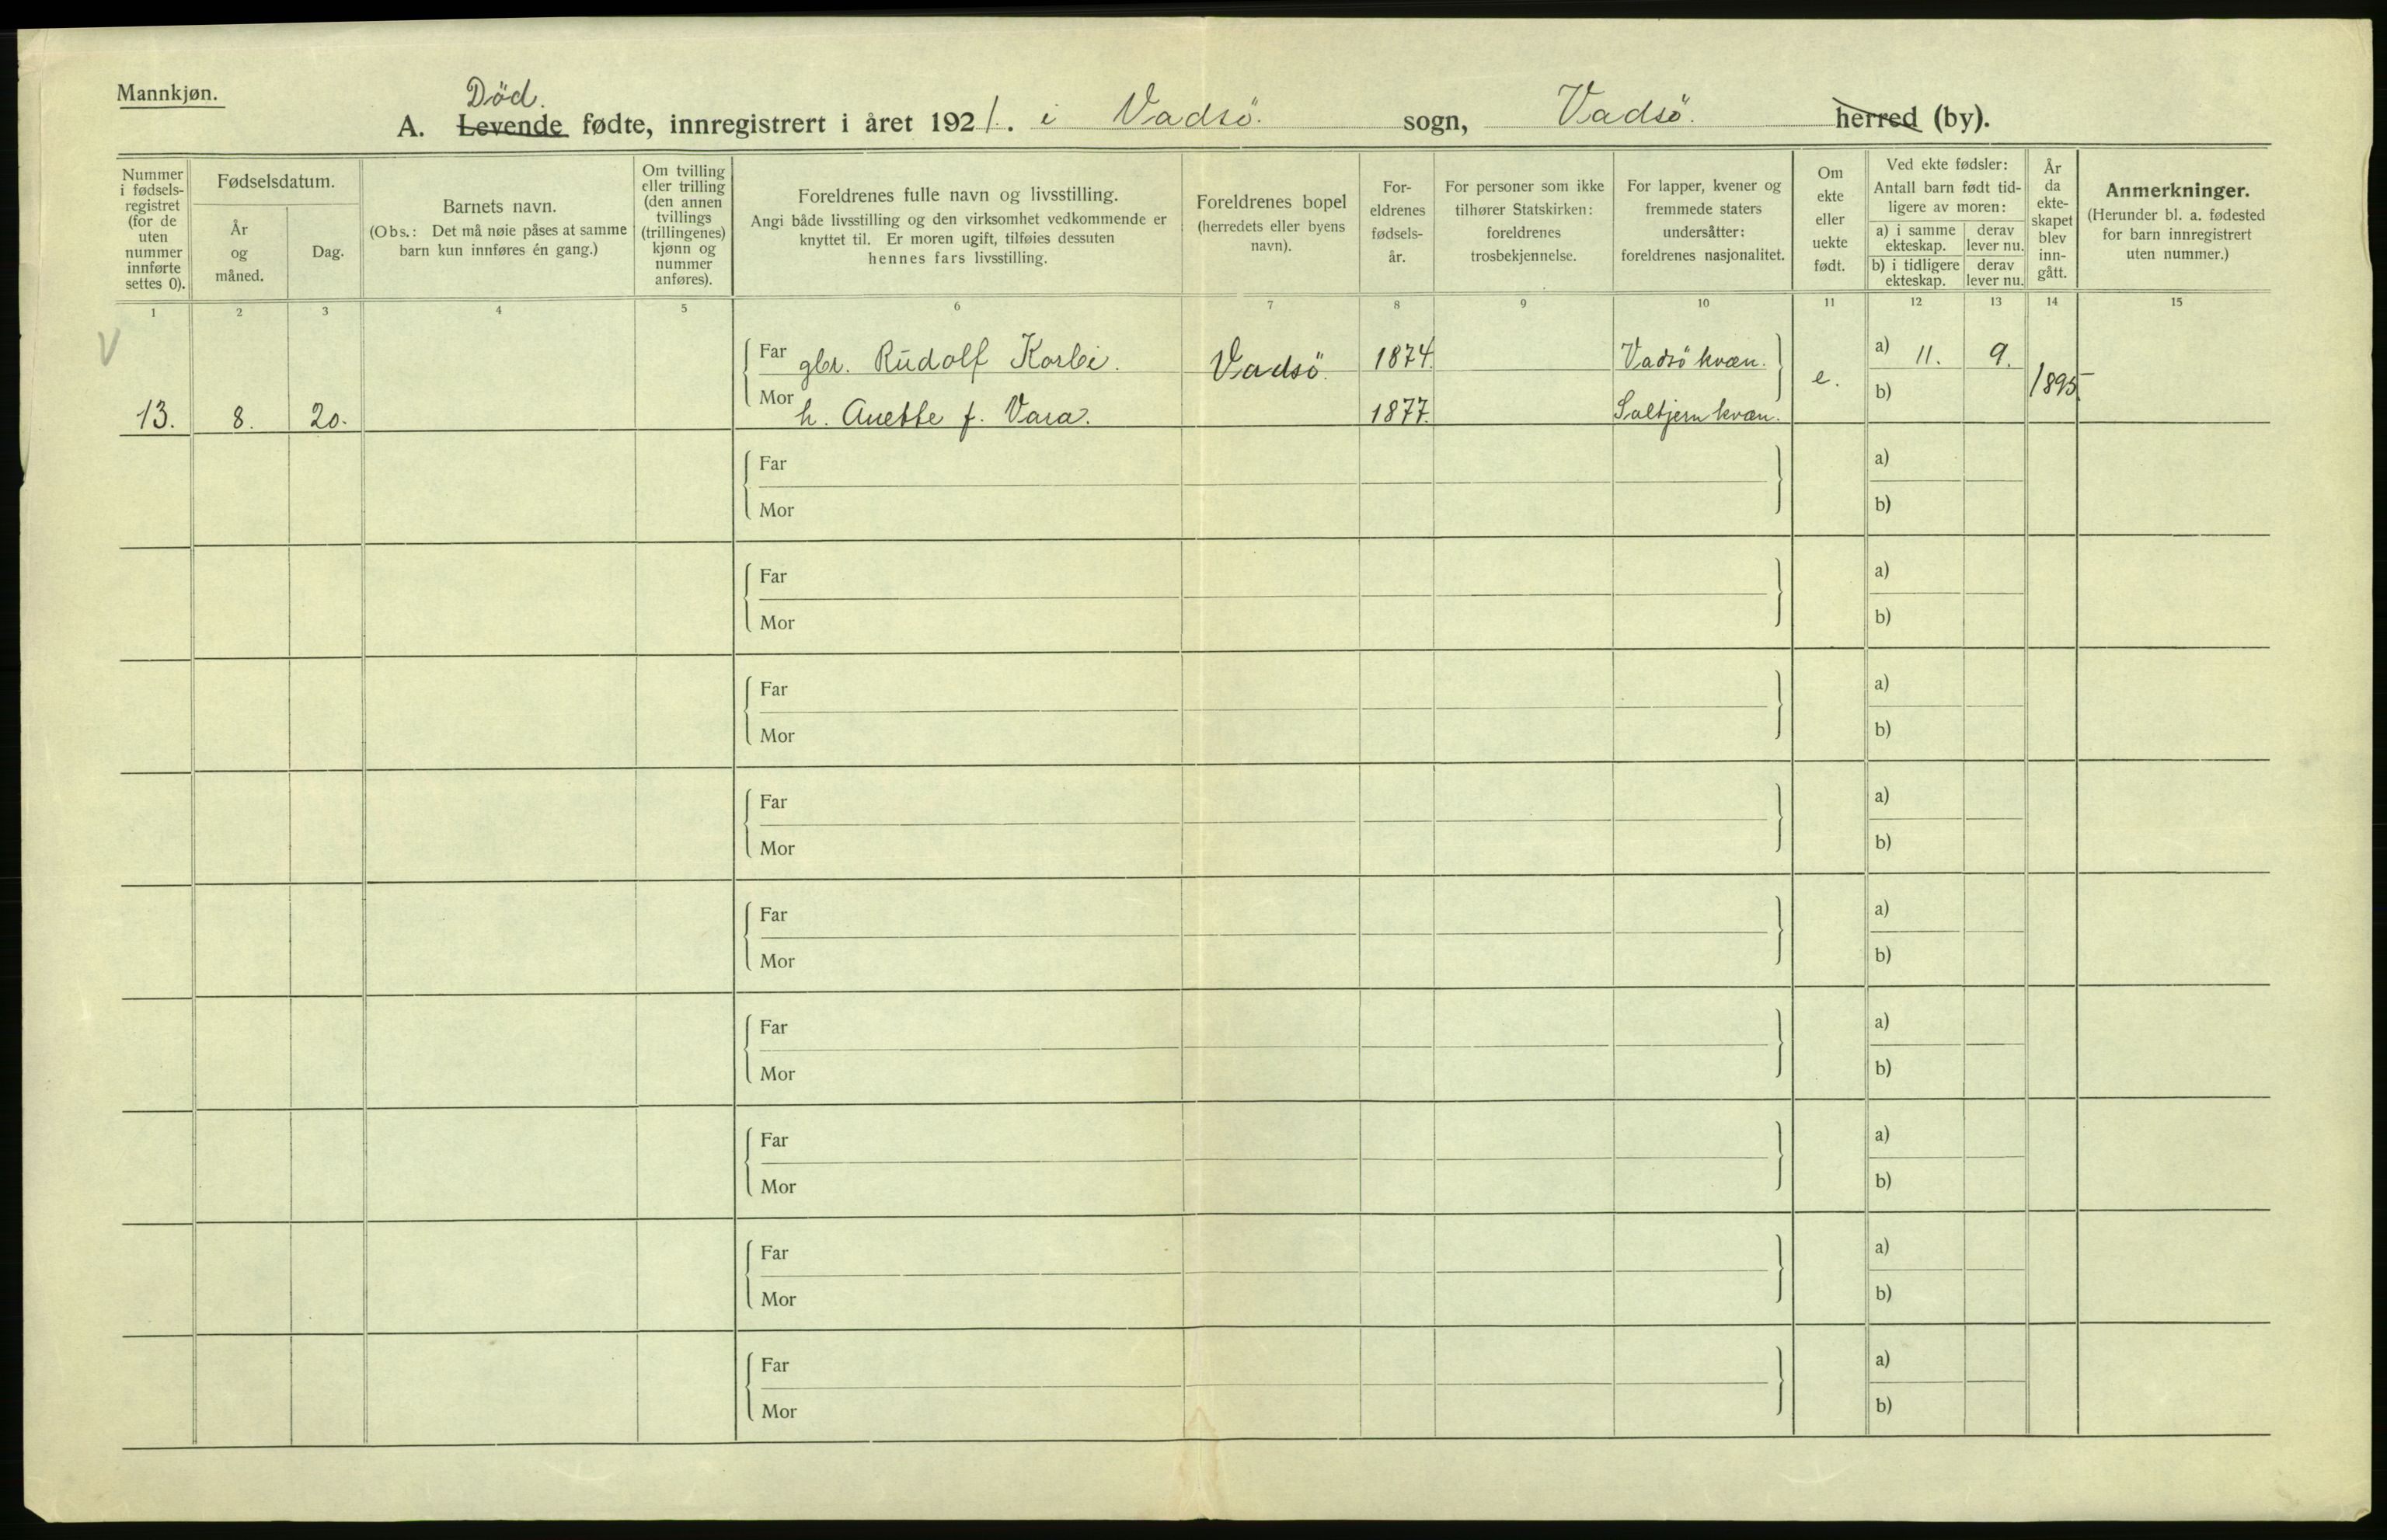 Mannkjøn.
Død.
A. Levende fødte, innregistrert i året 1921. i Vadsö. sogn, Vadsö. herred (by).
Nummer
i fødsels-
registret
(for de
uten
nummer
innførte
settes 0).
Fødselsdatum.
År
og
måned.
Dag.
Barnets navn.
(Obs.: Det må nøie påses at samme
barn kun innføres én gang.)
Om tvilling
eller trilling
(den annen
tvillings
(trillingenes)
kjønn og
nummer
anføres).
Foreldrenes fulle navn og livsstilling.
Angi både livsstilling og den virksomhet vedkommende er
knyttet til. Er moren ugift, tilføies dessuten
hennes fars livsstilling.
Foreldrenes bopel
(herredets eller byens
navn).
For-
eldrenes
fødsels-
år.
For personer som ikke
tilhører Statskirken:
foreldrenes
trosbekjennelse.
For lapper, kvener og
fremmede staters
undersåtter:
foreldrenes nasjonalitet.
Om
ekte
eller
uekte
født.
Ved ekte fødsler:
Antall barn født tid-
ligere av moren:
a) i samme
ekteskap.
derav
lever nu.
b) i tidligere
ekteskap.
derav
lever nu.
År
da
ekte-
skapet
blev
inn-
gått.
Anmerkninger.
(Herunder bl. a. fødested
for barn innregistrert
uten nummer.)
1 2 3 4 5 6 7 8 9 10 11 12 13 14 15
V
Far gbr. Rudolf Korbi. Vadsö. 1874. Vadsö kvæn. e. a) 11. 9. 1895
13. 8. 20. Mor h. Anette f. Vara. 1877. kvæn. b)
Far a)
Mor b)
Far a)
Mor b)
Far a)
Mor b)
Far a)
Mor b)
Far a)
Mor b)
Far a)
Mor b)
Far a)
Mor b)
Far a)
Mor b)
Far a)
Mor b)